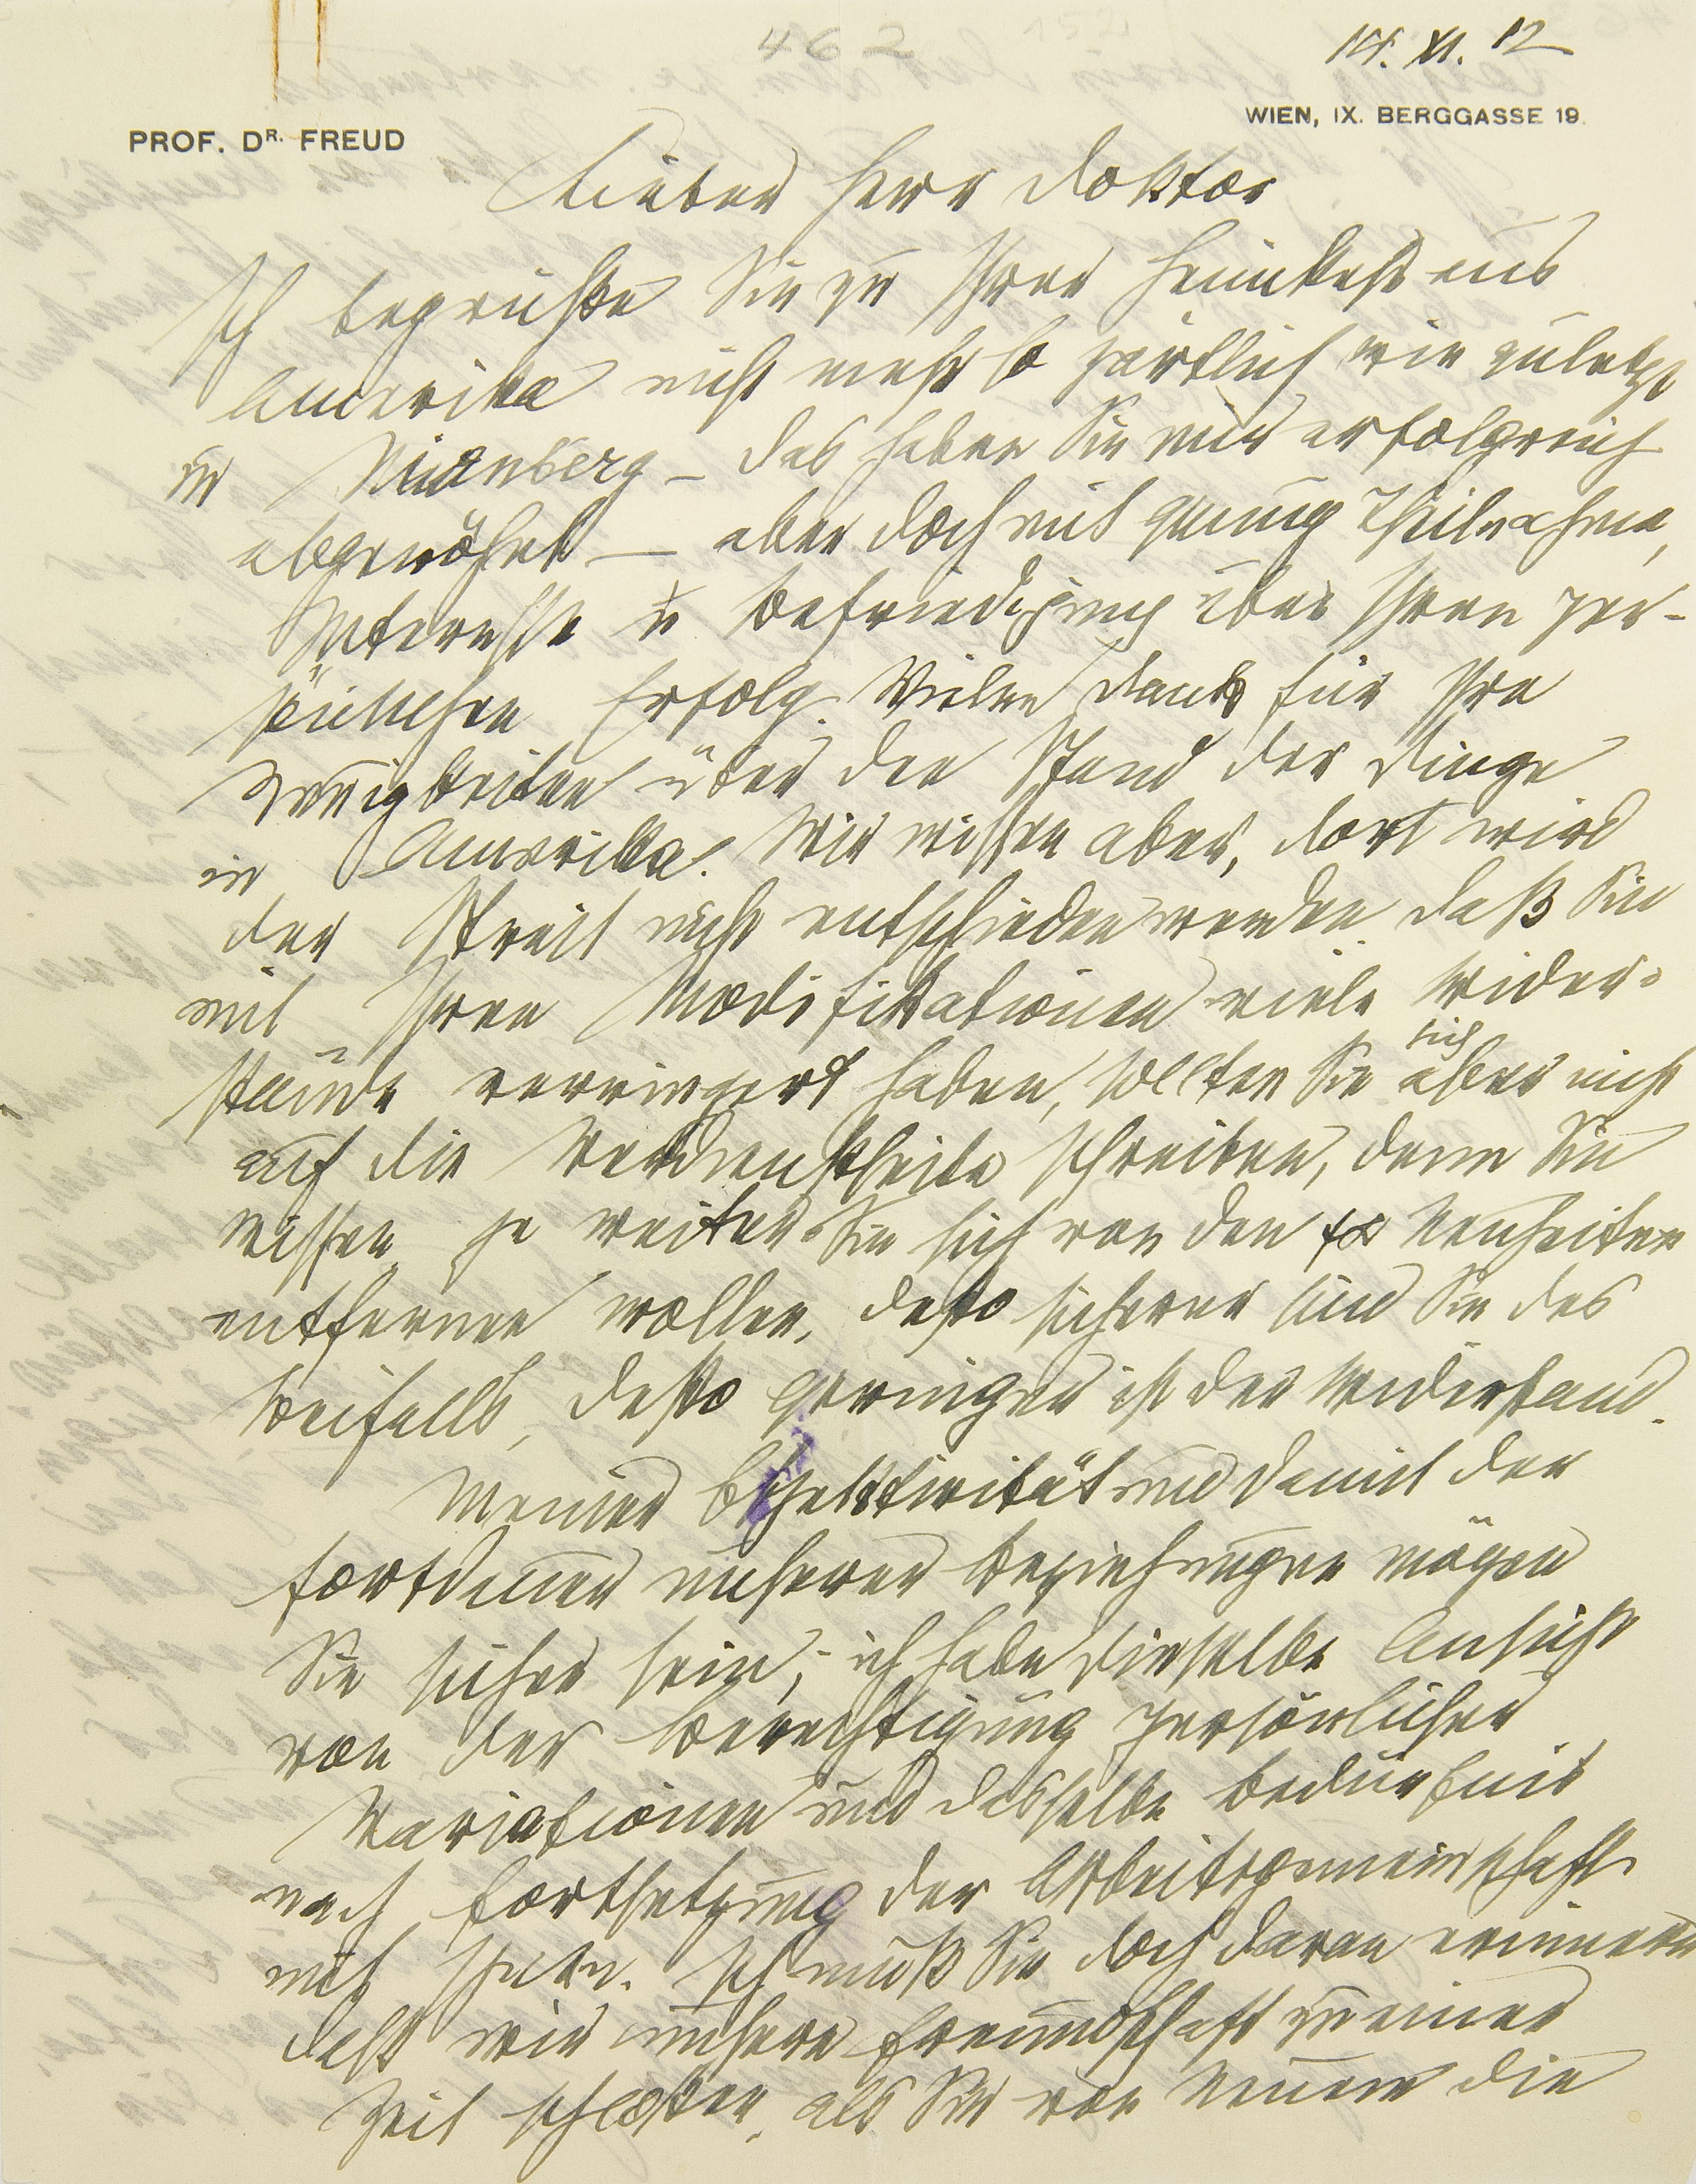 462
14. XI. 12
WIEN, IX. BERGGASSE 19.
PROF. DR. FREUD
Lieber Herr Doktor
Ich begrüße Sie zu Ihrer Heimkehr aus
Amerika nicht mehr so zärtlich wie zuletzt
in Nürnberg – das haben Sie mir erfolgreich
abgewöhnt – aber doch mit genug Theilnahme,
Interesse u Befriedigung über Ihren per-
sönlichen Erfolg. Vielen Dank für Ihre
Neuigkeiten über den Stand der Dinge
in Amerika. Wir wissen aber, dort wird
der Streit nicht entschieden werden. Daß Sie
mit Ihren Modifikationen viele Wider-
stände verringert haben, sollten Sie sich aber nicht
auf die Verdienstseite schreiben, denn Sie
wissen, je weiter Sie sich von den Neuheiten
entfernen wollen, desto sicherer sind Sie des
Beifalls, desto geringer ist der Widerstand.
Meiner Objektivität und damit der
Fortdauer unserer Beziehungen mögen
Sie sicher sein; ich habe dieselbe Ansicht
von der Berechtigung persönlicher
Variationen und dasselbe Bedürfnis
nach Fortsetzung der Arbeitsgemeinschaft
mit Ihnen. Ich muß Sie doch daran erinnern
daß wir unsere Freundschaft zu einer
Zeit schloßen, als Sie von Neuem die